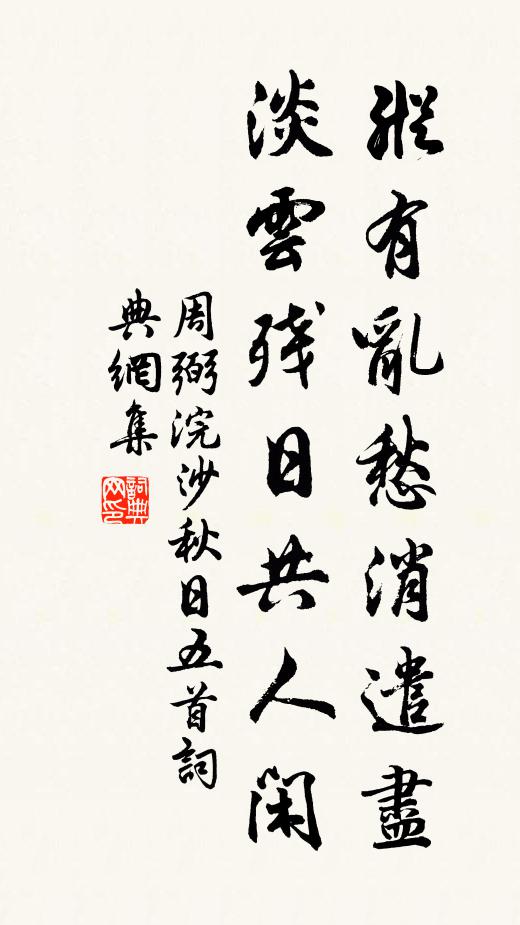 縱有亂愁消遣盡
淡雲残日共人閑
周弼浣沙秋日五首詞
典網集
詞典
网印